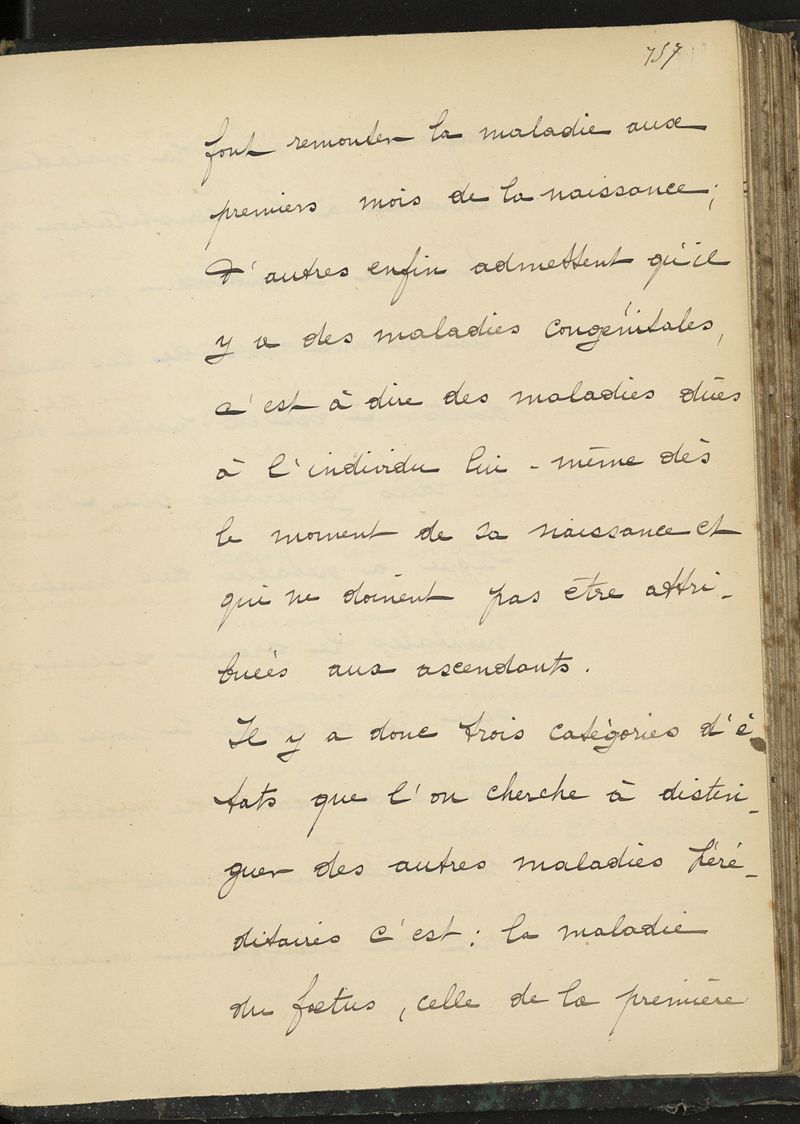 757
font remonter la maladie aux
premiers mois de la naissance;
d'autres enfin admettent qu'il
y a des maladies congénitales,
c'est à dire des maladies dûes
à l'individu lui-même dès
le moment de sa naissance et
qui ne doivent pas être attri-
buées aux ascendants.
Il y a donc trois catégories d'é
tats que l'on cherche à distin-
guer des autres maladies héré-
ditaires c'est: la maladie
du fœtus, celle de la première